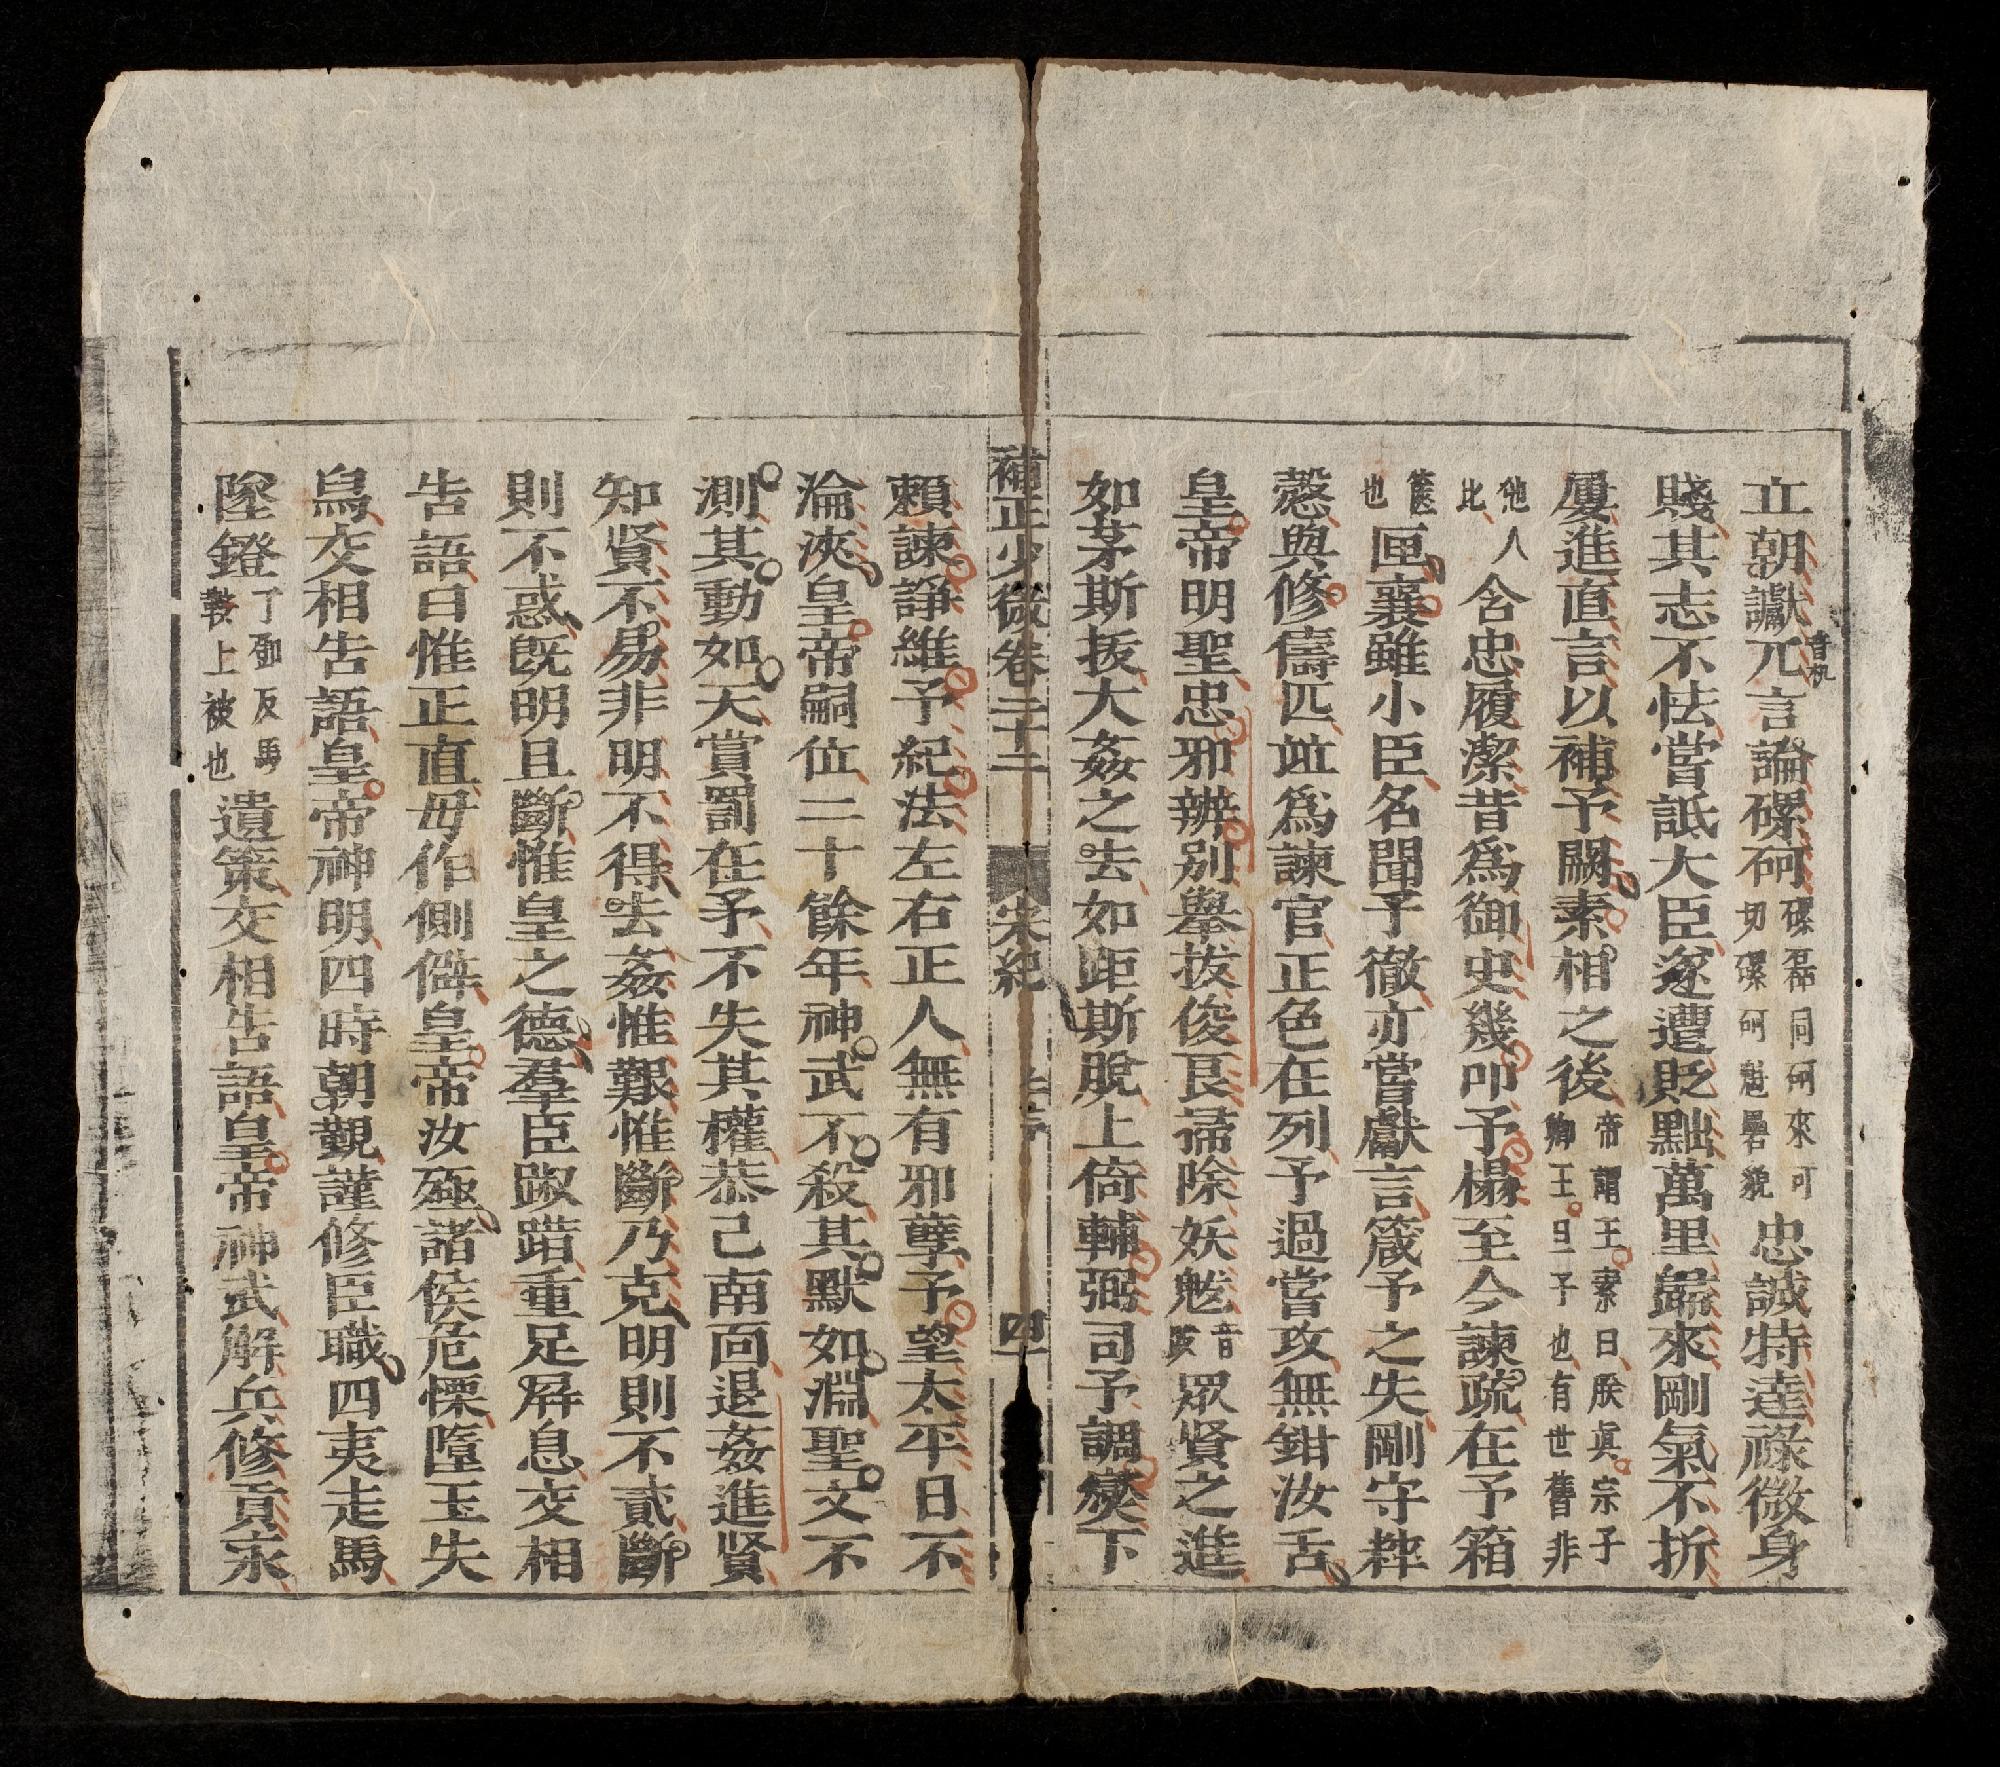 立朝讞兀言論磥砢磥磊同砢來可切磥砢魁礨貌忠誠特達祿微身
賤其志不怯嘗詆大臣遂遭貶黜萬里歸來剛氣不折
屢進直言以補予闕素相之後帝謂王素曰朕眞宗子卿王旦子也有世舊非
他人比含忠履潔昔爲御史幾叩予榻至今諫疏在予箱
篋也匣襄雖小臣名聞予徹亦嘗獻言箴予之失剛守粹
慤與修儔匹竝爲諫官正色在列予過當攻無鉗汝舌
皇帝明聖忠邪辨別舉拔俊良掃除妖魃音跋眾賢之進
如茅斯拔大姦之去如距斯脫上倚輔弼司予調燮下
補正少微卷二十二 宋紀 四
賴諫諍維予紀法左右正人無有邪孽予望太平日不
淪浹皇帝嗣位二十餘年神武不殺其默如淵聖文不
測其動如天賞罰在予不失其權恭己南面退姦進賢
知賢不易非明不得去姦惟艱惟斷乃克明則不貳斷
則不惑既明且斷惟皇之德羣臣踧踖重足屏息交相
告語曰惟正直毋作側僻皇帝汝殛諸侯危慄墮玉失
舄交相告語皇帝神明四時朝覲謹修臣職四夷走馬
墜鐙丁鄧反馬鞍上被也遺策交相告語皇帝神武解兵修貢永